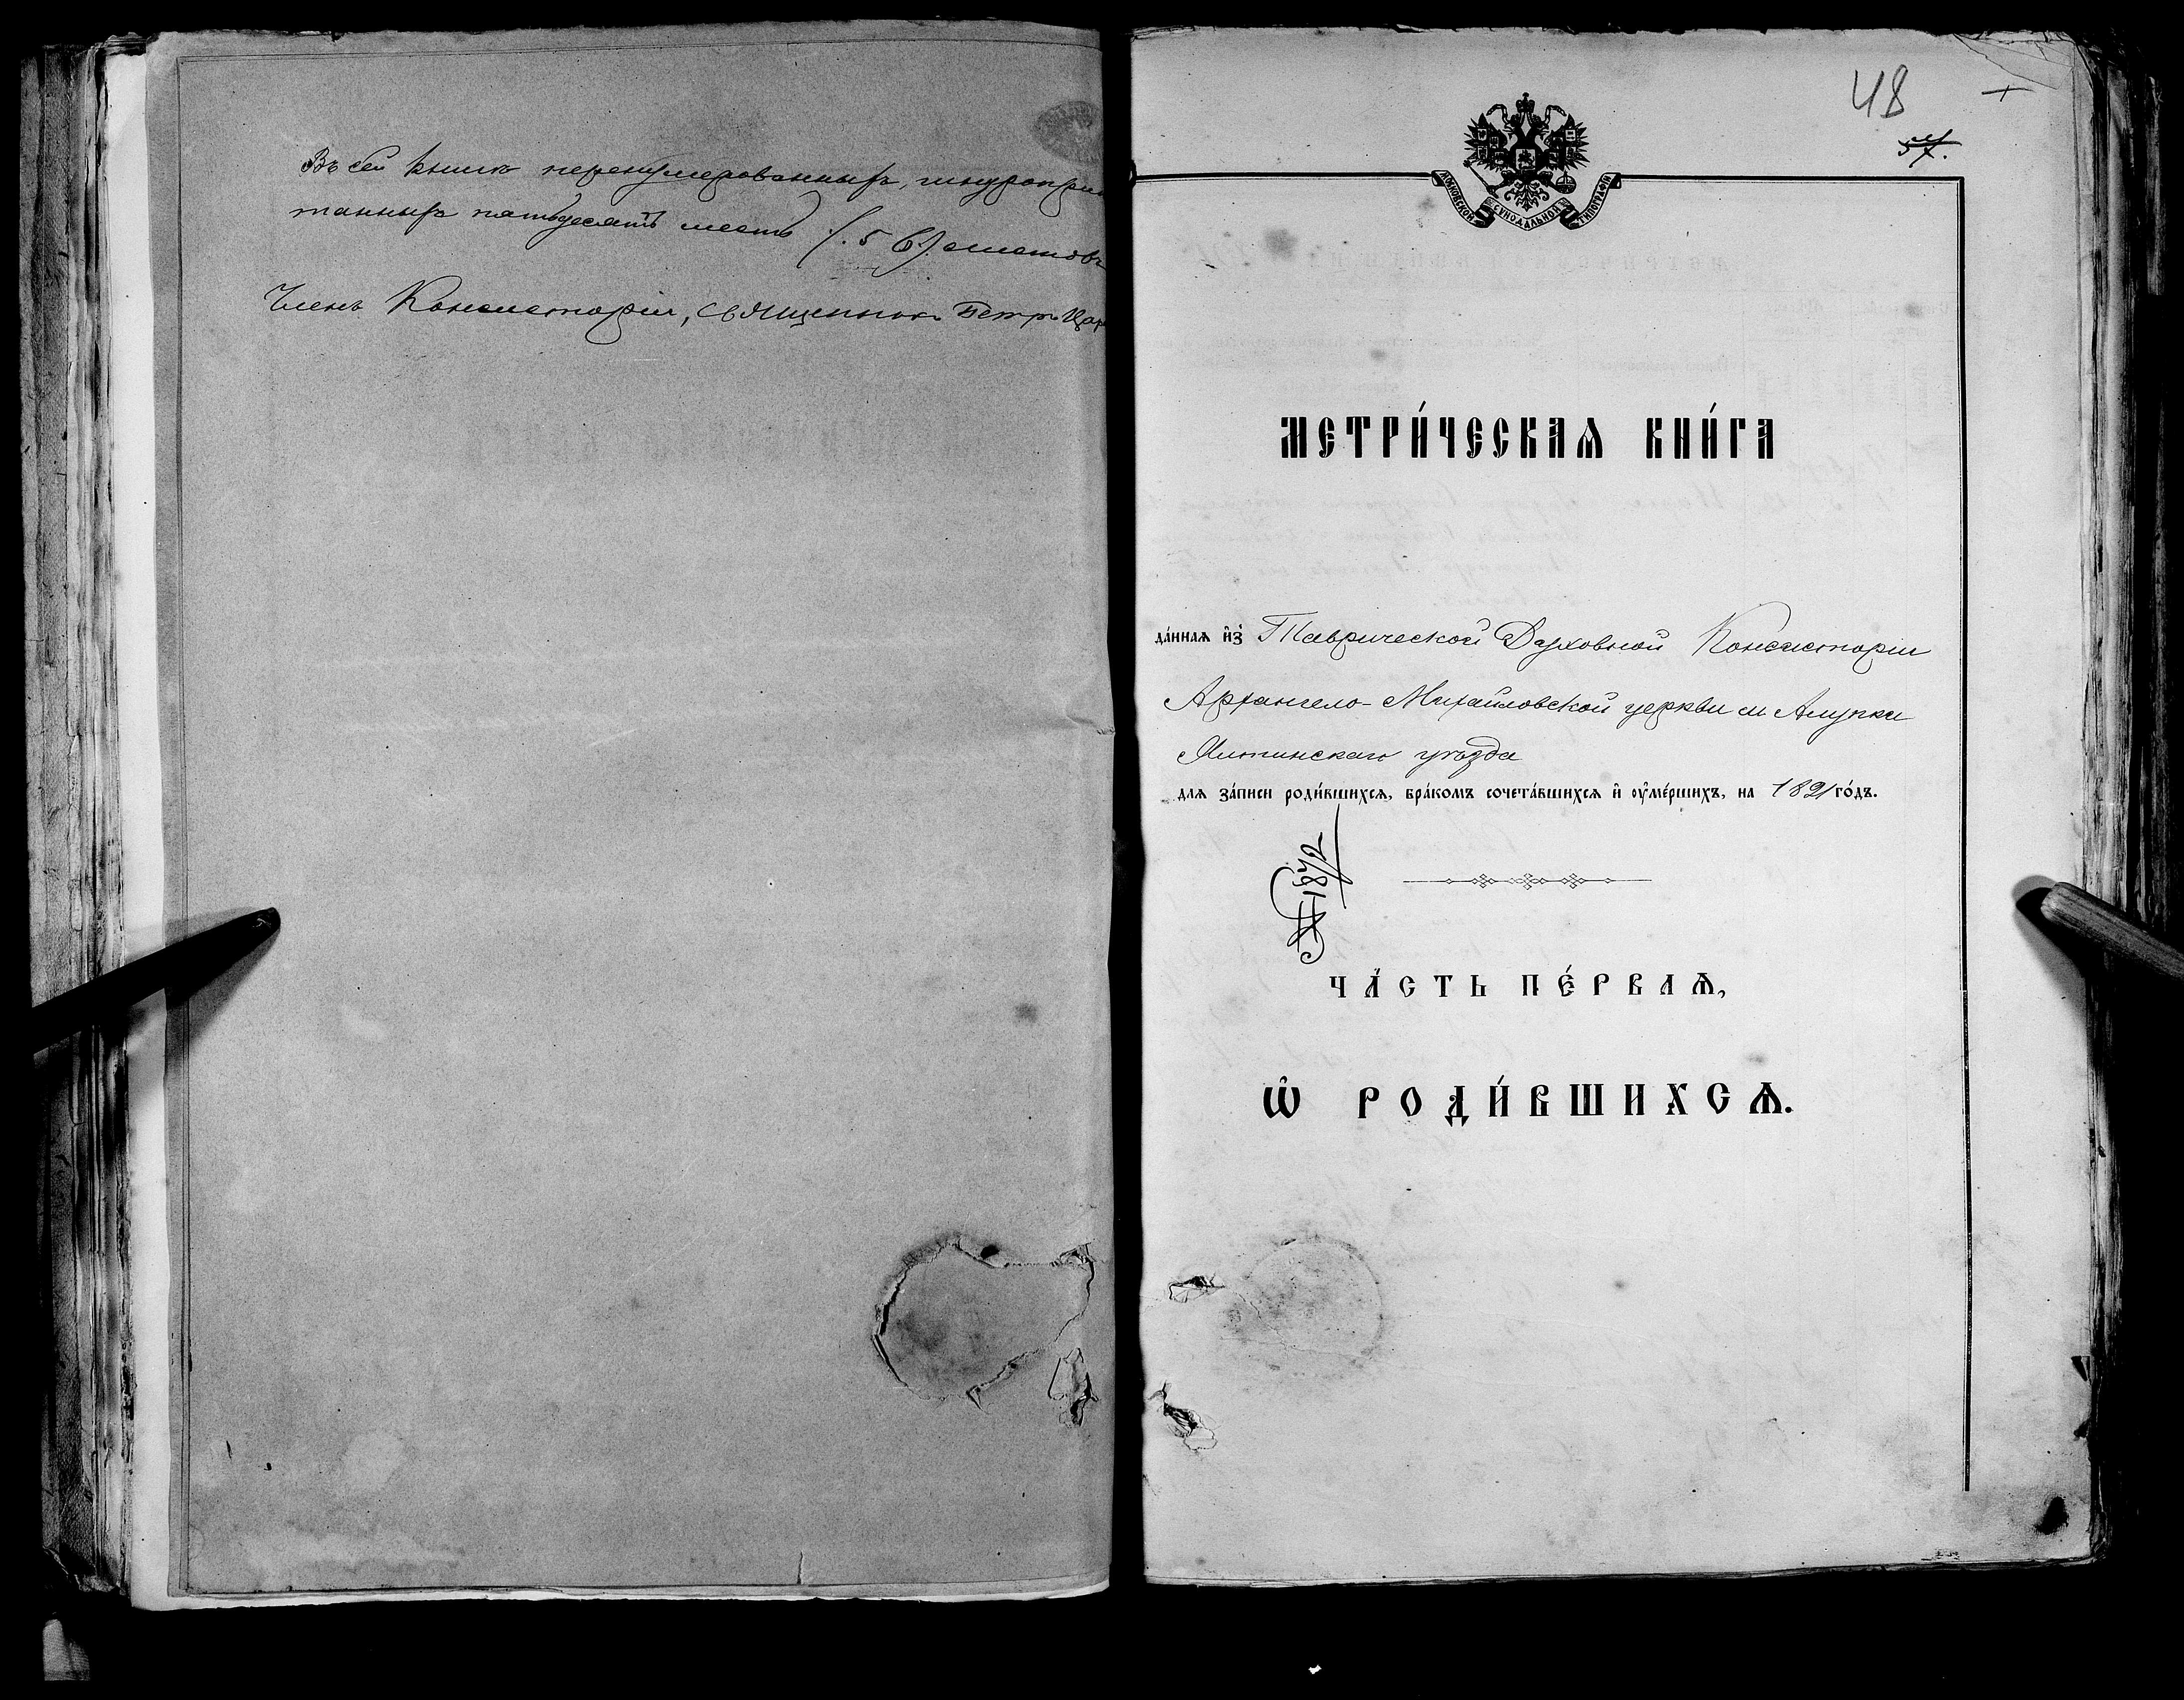 Въ сей книгѣ перенумерованныхъ, шнуропри
танныхъ пятьдесятъ шесть (. 56 .) листовъ
Членъ Консисторіи, священникъ Петръ
48
57.
МОСКОВСКОЙ СѴНОДАЛЬНОЙ ТИПОГРАФІИ
МЕТРИ́ЧЕСКАѦ КНИ́ГА
да́ннаѧ и҆з̾ Таврической Духовной Консисторіи
Архангело-Михайловской церкви м Алупки
Ялтинскаго уѣзда
для за́писи роди́вшихсѧ, бра́комъ сочета́вшихсѧ и҆ оу҆ме́ршихъ, на 1891 го́дъ.
ЧА́СТЬ ПЕ́РВАѦ,
Ѡ҆ РОДИ́ВШИХСѦ.